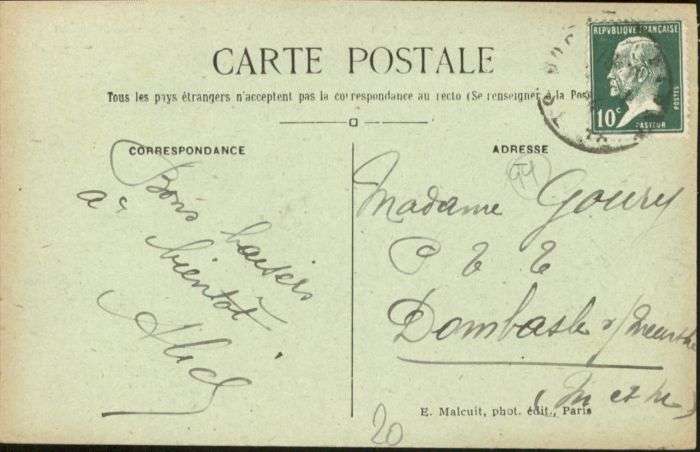 CARTE POSTALE
Tous les pays étrangers n'acceptent pas la correspondance au recto (Se renseigner à la Pos
CORRESPONDANCE
Bons baisers
à bientôt
ADRESSE
Madame Goury
P T T
Dombasle s/ Meurthe
(M et M)
E. Malcuit, phot. édit., Paris
20
REPUBLIQUE FRANÇAISE
POSTES
10c
PASTEUR